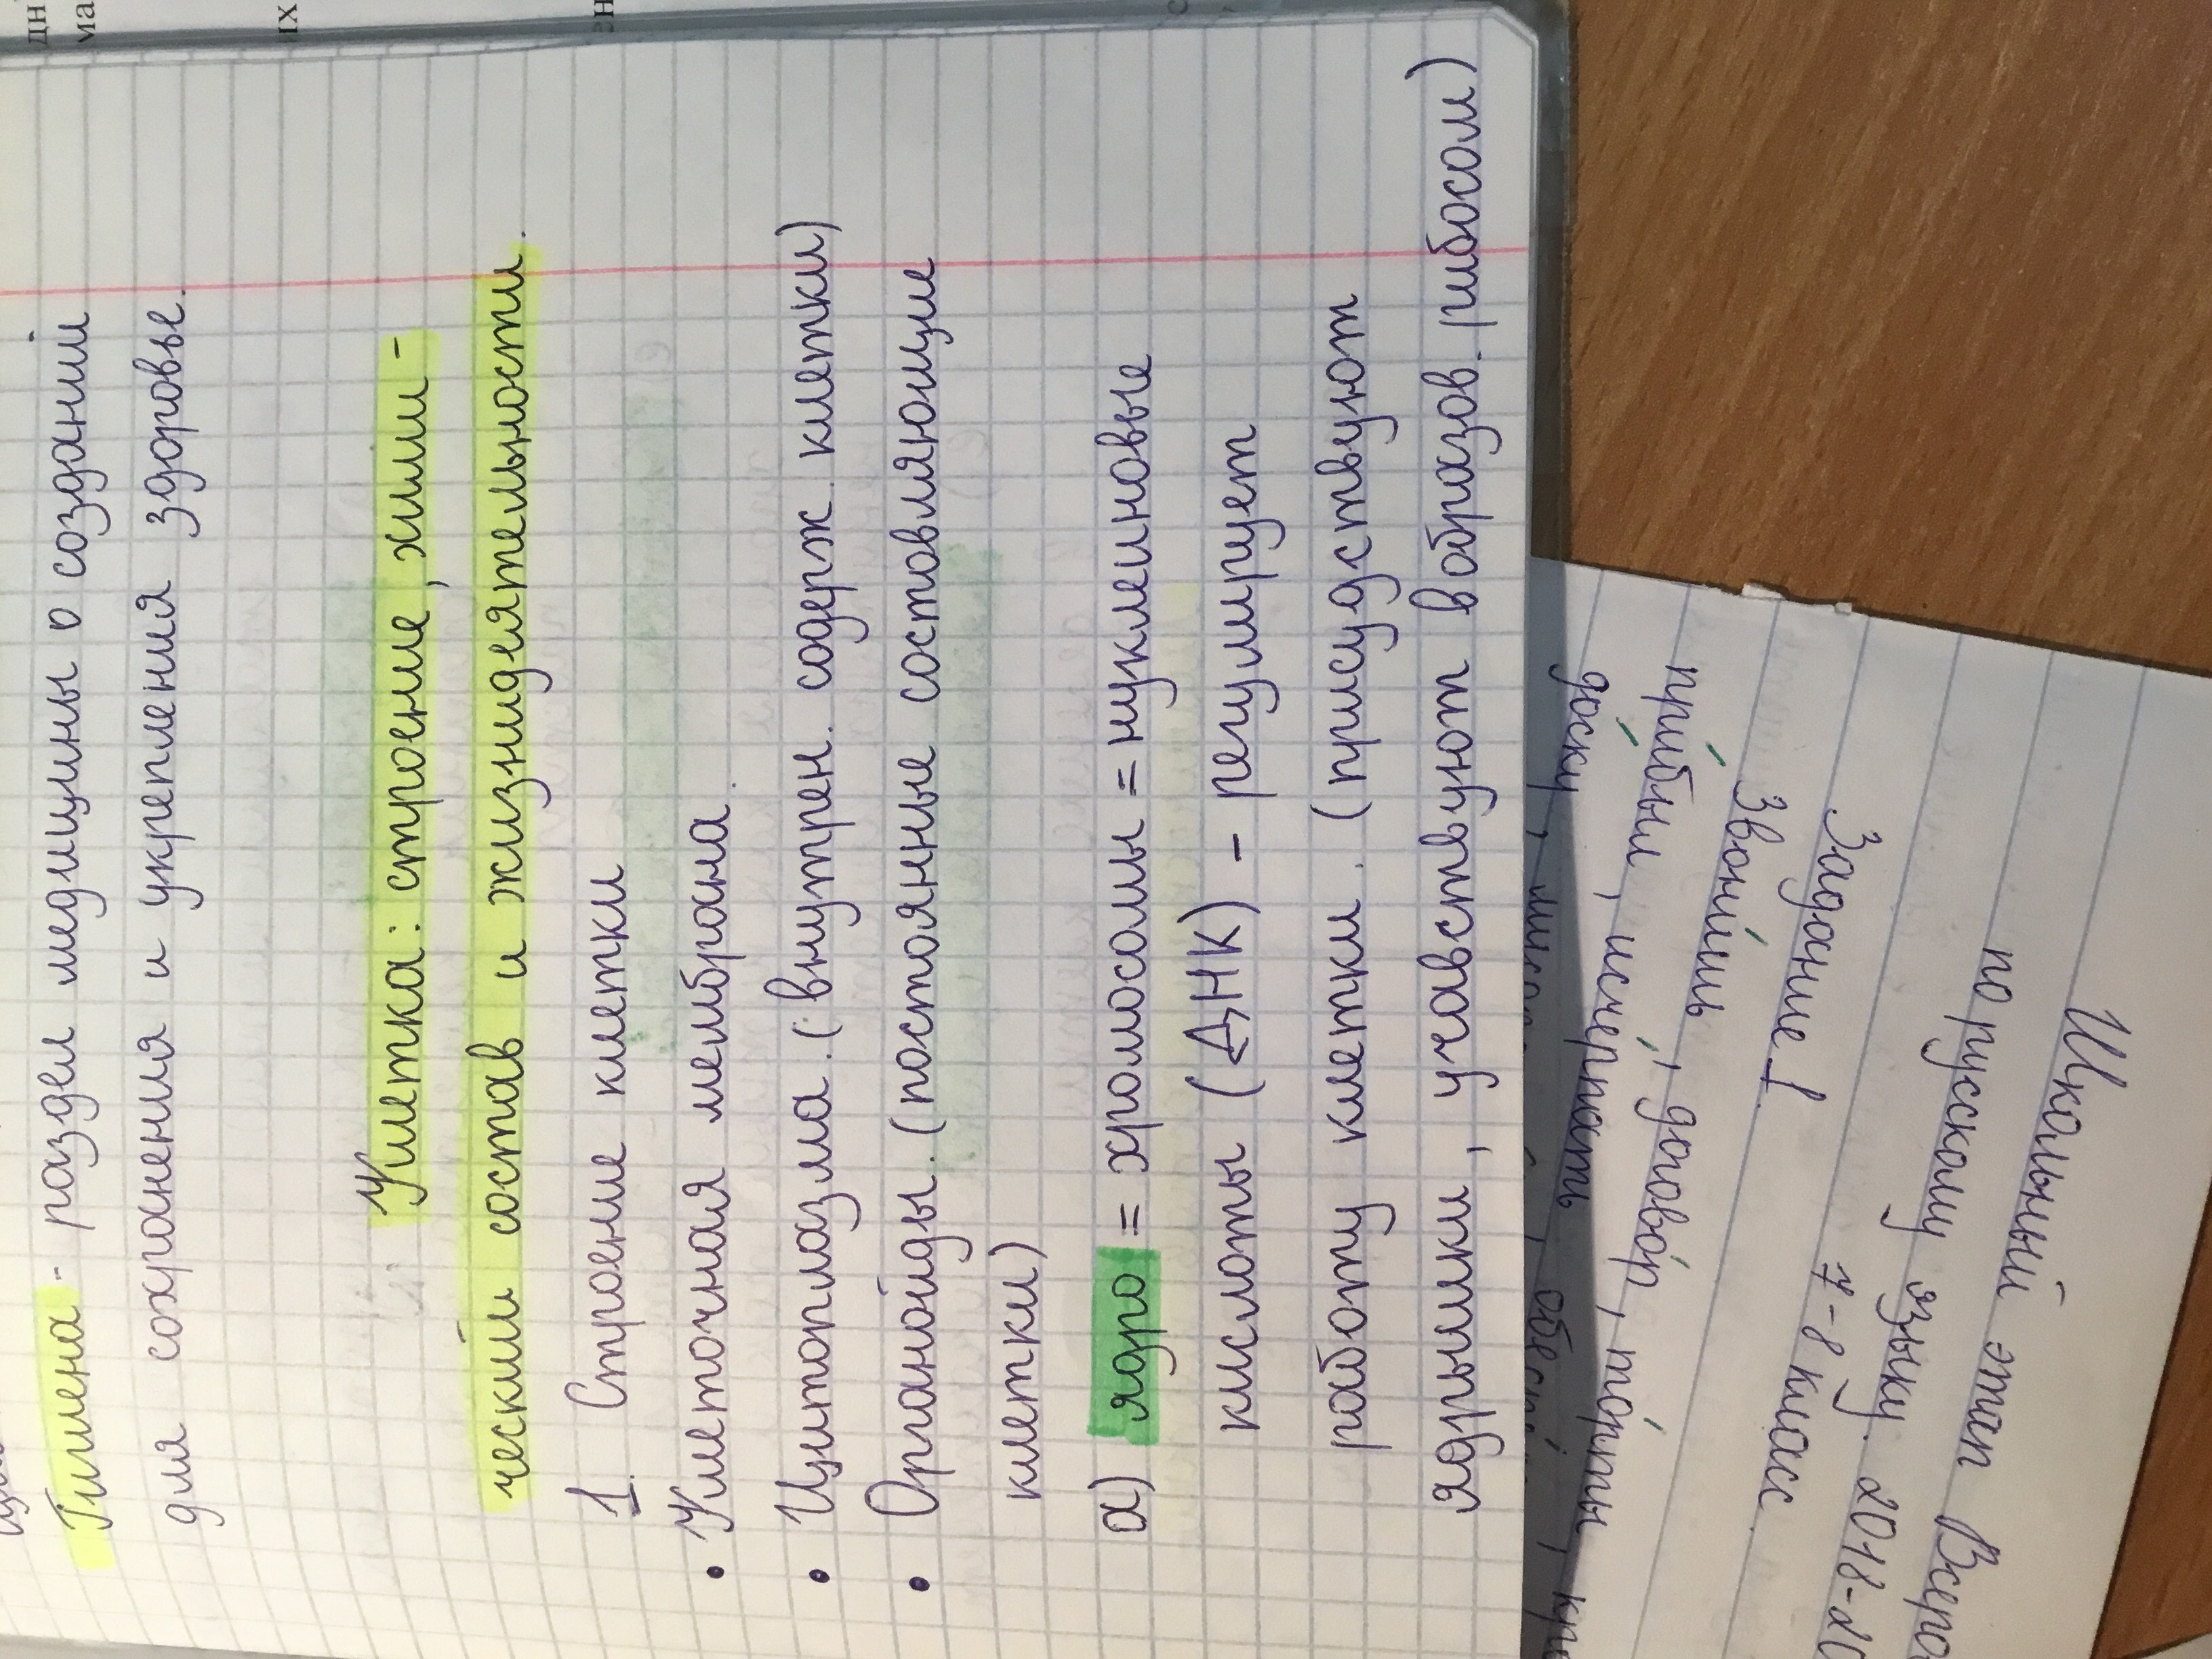 Гигиена - раздел медицины о создании
для сохранения и укрепления здоровье.
Клетка: строение, хими -
ческий состав и жизнидеятельности.
1. Строение клетки
• Клеточная мембрана.
• Цитоплазма. (внутрен. содерж. клетки)
• Органойды. (постоянные составляющие
клетки)
а) ядро = хромосомы = нуклеиновые
кислоты (ДНК) - регулирует
работу клетки. (присудствуют
ядрышки, учавствуют в образов. рибосом)
Школьный этап Всеро
по русскому языку. 2018-20
7-8 класс
Задание 1
Звони́шь
при́были, исчерпать, догово́р, то́рты
до́ску